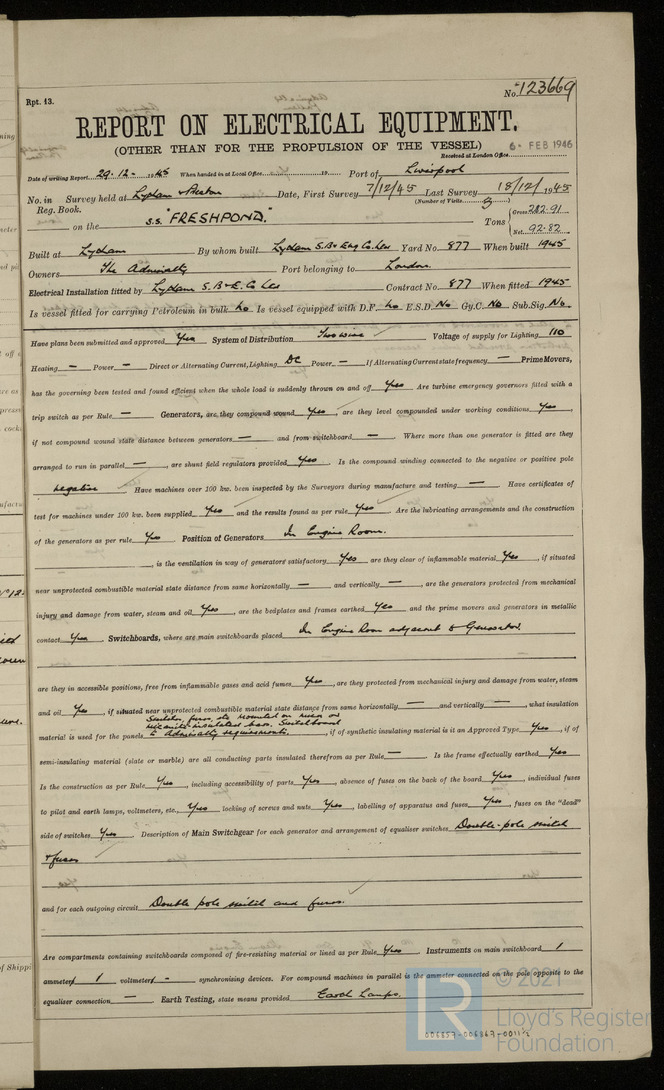 Rpt. 13.
No. 123669
REPORT ON ELECTRICAL EQUIPMENT.
(OTHER THAN FOR THE PROPULSION OF THE VESSEL)
6 - FEB 1946
Received at London Office
Date of writing Report 29-12- 1945 When handed in at Local Office 19 Port of Liverpool
No. in Survey held at Lytham & Preston Date, First Survey 7/12/45 Last Survey 18/12/1945
Reg. Book. (Number of Visits 3)
on the S.S. "FRESHPOND." Tons { Gross 282.91 Net 92.82
Built at Lytham By whom built Lytham S.B & Eng Co Ltd Yard No. 877 When built 1945
Owners The Admiralty Port belonging to London
Electrical Installation fitted by Lytham S.B & E. Co Ltd Contract No. 877 When fitted 1945
Is vessel fitted for carrying Petroleum in bulk No Is vessel equipped with D.F. No E.S.D. No Gy.C. No Sub.Sig. No
Have plans been submitted and approved Yes System of Distribution Two wire Voltage of supply for Lighting 110
Heating — Power — Direct or Alternating Current, Lighting DC Power — If Alternating Current state frequency — Prime Movers,
has the governing been tested and found efficient when the whole load is suddenly thrown on and off Yes Are turbine emergency governors fitted with a
trip switch as per Rule — Generators, are they compound wound Yes, are they level compounded under working conditions Yes,
if not compound wound state distance between generators — and from switchboard — Where more than one generator is fitted are they
arranged to run in parallel —, are shunt field regulators provided Yes Is the compound winding connected to the negative or positive pole
Negative Have machines over 100 kw. been inspected by the Surveyors during manufacture and testing — Have certificates of
test for machines under 100 kw. been supplied Yes and the results found as per rule Yes Are the lubricating arrangements and the construction
of the generators as per rule Yes Position of Generators In Engine Room.
, is the ventilation in way of generators satisfactory Yes are they clear of inflammable material Yes, if situated
near unprotected combustible material state distance from same horizontally — and vertically —, are the generators protected from mechanical
injury and damage from water, steam and oil Yes, are the bedplates and frames earthed Yes and the prime movers and generators in metallic
contact Yes Switchboards, where are main switchboards placed In Engine Room adjacent to Generator.
are they in accessible positions, free from inflammable gases and acid fumes Yes, are they protected from mechanical injury and damage from water, steam
and oil Yes, if situated near unprotected combustible material state distance from same horizontally — and vertically —, what insulation
Switches, fuses, etc mounted on
insulated Switchboard
material is used for the panels to Admiralty requirements., if of synthetic insulating material is it an Approved Type Yes, if of
semi-insulating material (slate or marble) are all conducting parts insulated therefrom as per Rule — Is the frame effectually earthed Yes
Is the construction as per Rule Yes, including accessibility of parts Yes, absence of fuses on the back of the board Yes, individual fuses
to pilot and earth lamps, voltmeters, etc., Yes locking of screws and nuts Yes, labelling of apparatus and fuses Yes, fuses on the "dead"
side of switches Yes Description of Main Switchgear for each generator and arrangement of equaliser switches Double-pole switch
& fuses
and for each outgoing circuit Double pole switch and fuses.
Are compartments containing switchboards composed of fire-resisting material or lined as per Rule Yes Instruments on main switchboard 1
ammeters 1 voltmeters - synchronising devices. For compound machines in parallel is the ammeter connected on the pole opposite to the
equaliser connection — Earth Testing, state means provided Earth Lamps.
© 2021
Lloyd's Register
Foundation